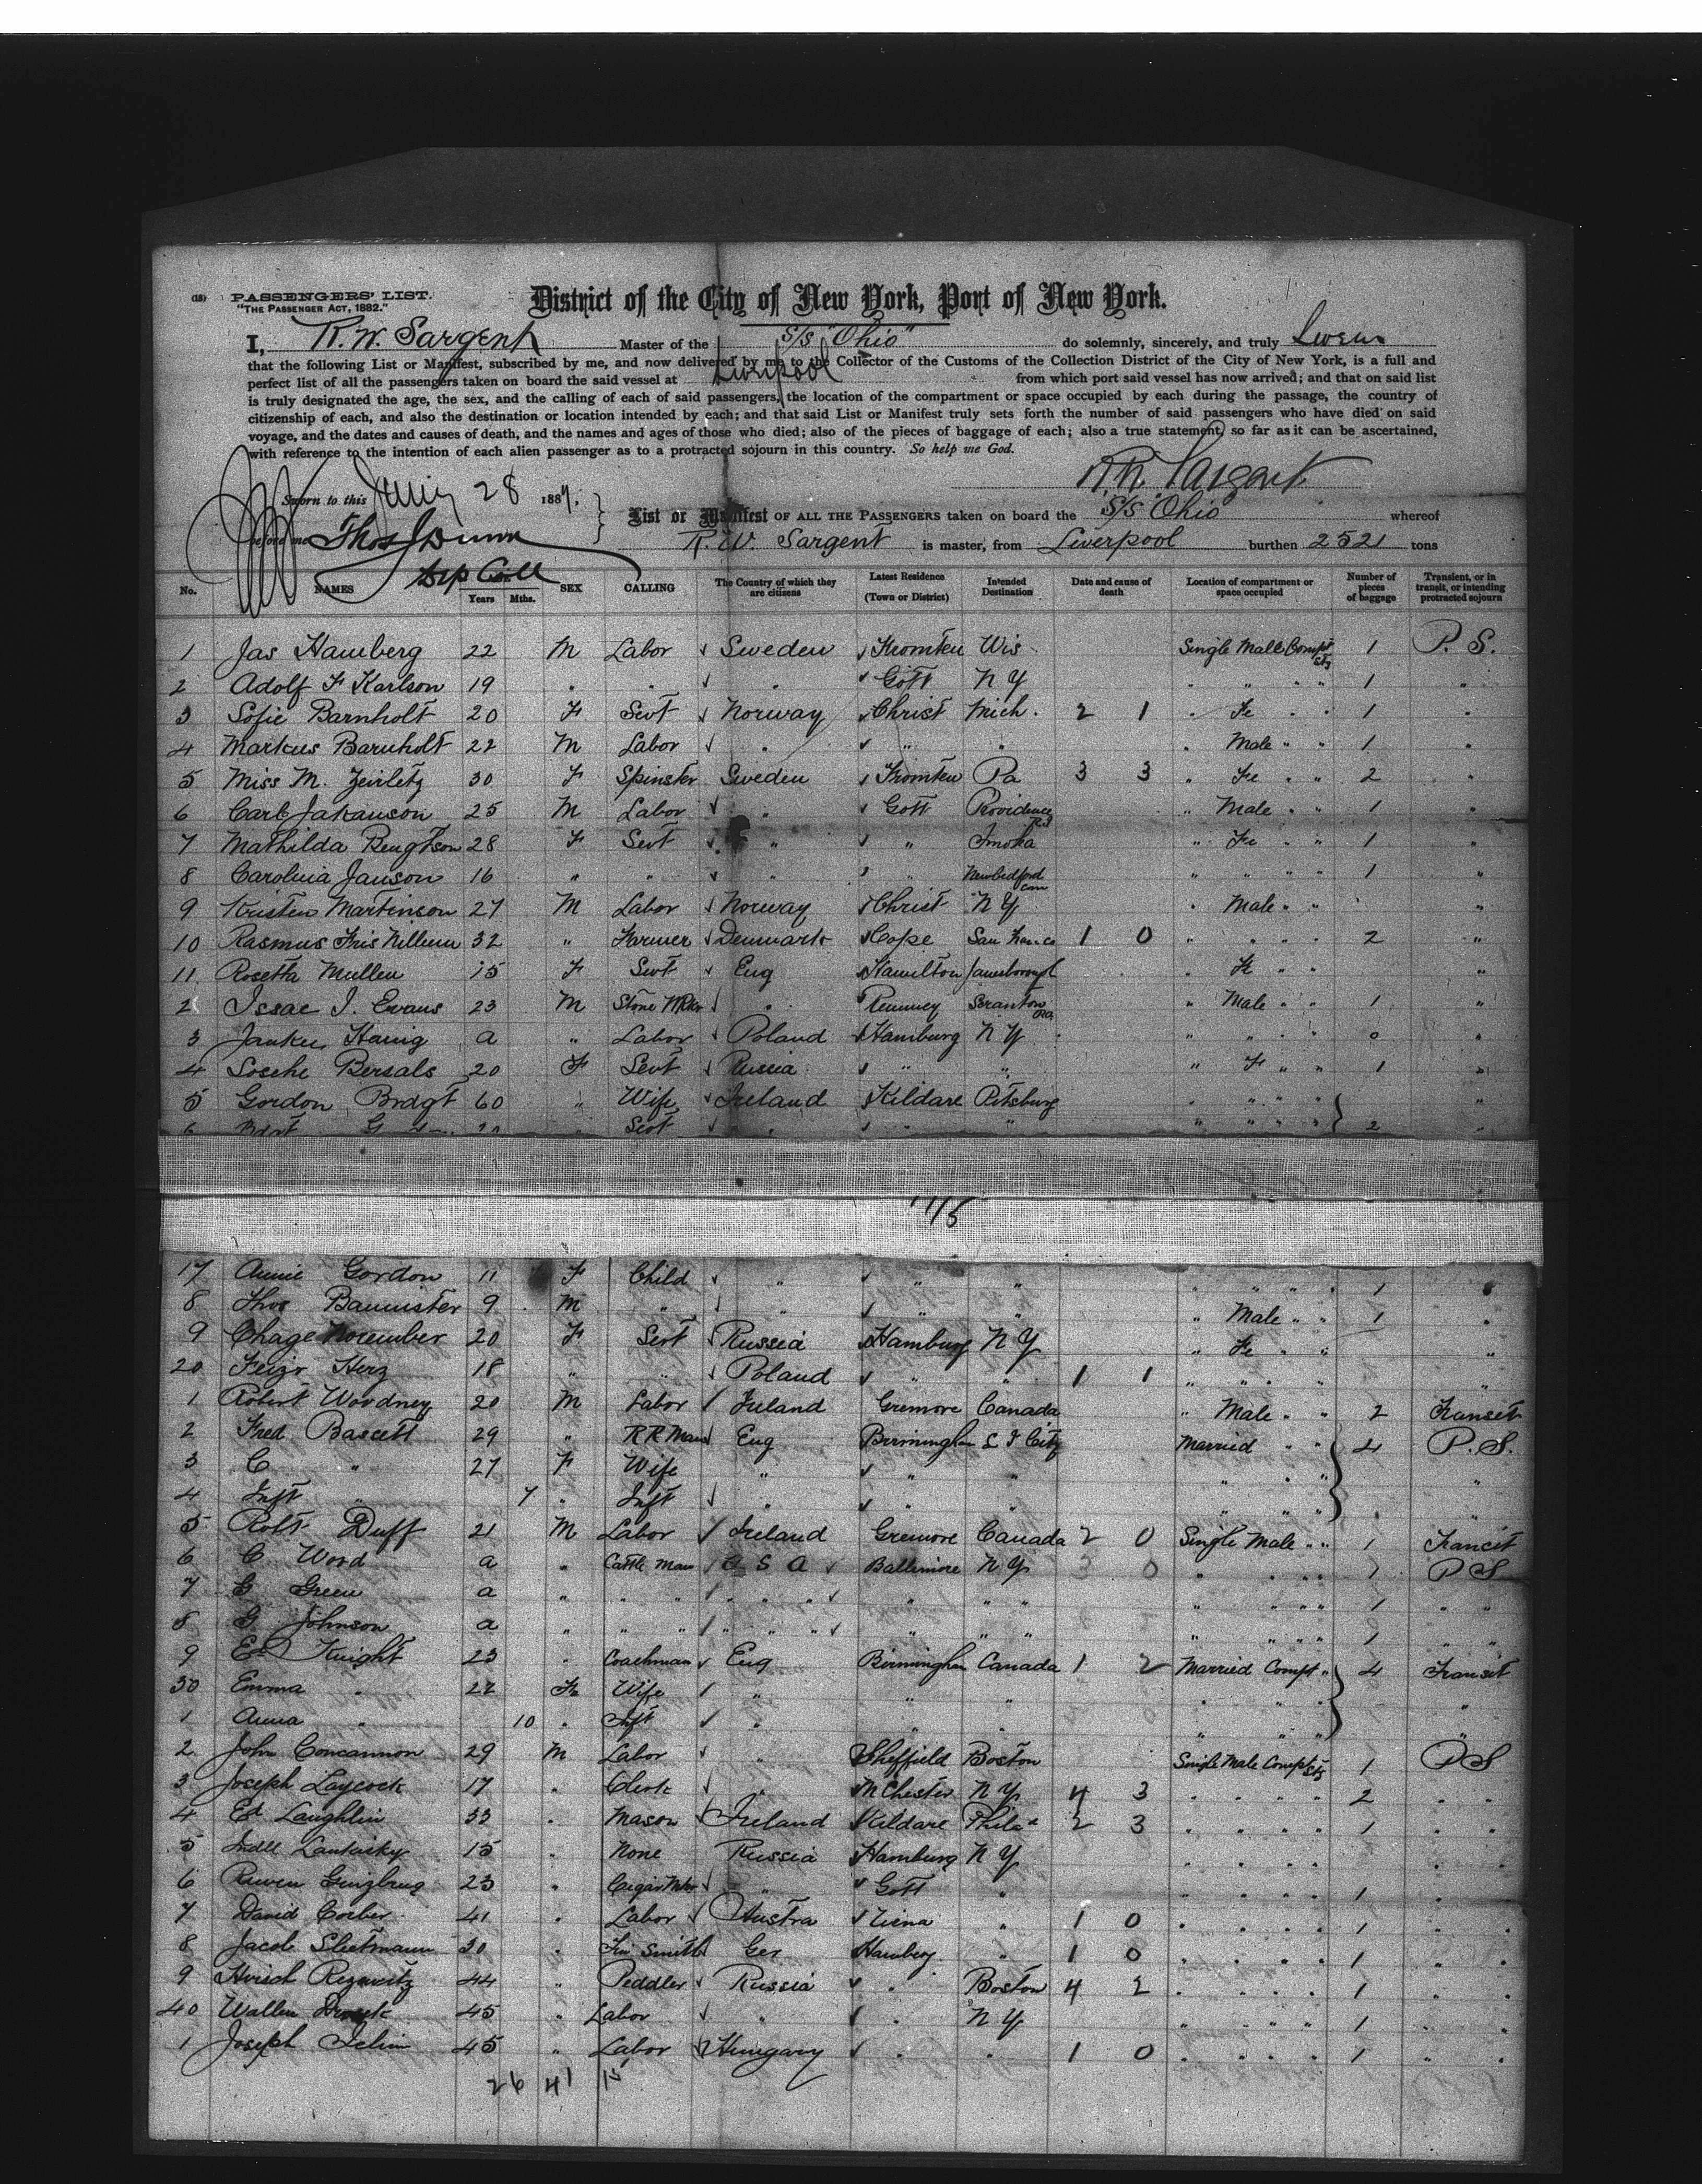 (18) PASSENGERS' LIST.
"THE PASSENGER ACT, 1882."
District of the City of New York, Port of New York.
I, R. W. Sargent Master of the S/s "Ohio" do solemnly, sincerely, and truly Swear
that the following List or Manifest, subscribed by me, and now delivered by me to the Collector of the Customs of the Collection District of the City of New York, is a full and
perfect list of all the passengers taken on board the said vessel at Liverpool from which port said vessel has now arrived; and that on said list
is truly designated the age, the sex, and the calling of each of said passengers, the location of the compartment or space occupied by each during the passage, the country of
citizenship of each, and also the destination or location intended by each; and that said List or Manifest truly sets forth the number of said passengers who have died on said
voyage, and the dates and causes of death, and the names and ages of those who died; also of the pieces of baggage of each; also a true statement, so far as it can be ascertained,
with reference to the intention of each alien passenger as to a protracted sojourn in this country. So help me God.
R. W. Sargent
Sworn to this 28 1887.
before me Thos J Dunn
Dep Coll
List or Manifest OF ALL THE PASSENGERS taken on board the S/S Ohio whereof
R. W. Sargent is master, from Liverpool burthen 2521 tons
No. NAMES Years Mths. SEX CALLING The Country of which they are citizens Latest Residence (Town or District) Intended Destination Date and cause of death Location of compartment or space occupied Number of pieces of baggage Transient, or in transit, or intending protracted sojourn
1 Jas Hamberg 22 M Labor Sweden Wis Single Male Compt 1 P. S.
2 Adolf F Karlson 19 " " " Gott N Y " " " " 1 "
3 Sofie Barnholt 20 F Sevt Norway Christ Mich. 2 1 " Fe " " 1 "
4 Markus Barnholt 22 M Labor " " " " Male " " 1 "
5 Miss M. 30 F Spinster Sweden Pa 3 3 " Fe " " 2 "
6 Carl Jakanson 25 M Labor " Gott Providence R.I " Male " " 1 "
7 Mathilda Bengtson 28 F Sevt " " " Fe " " 1 "
8 Carolina Janson 16 " " " " New Bedford " " " " 1 "
9 Kristen Martinson 27 M Labor Norway Christ N Y " Male " " "
10 Rasmus 32 " Farmer Denmark Cope San Franco 1 0 " " " " 2 "
11 Rosetta Mullen 15 F Sevt Eng Hamilton " Fe " " "
2 Issac J. Evans 23 M Stone Mkr " Scranton Pa " Male " " 1 "
3 a " Labor Poland Hamburg N Y " " " " 0 "
4 Bersals 20 F Sevt Russia " " " F " " 1 "
5 Gordon Brdgt 60 " Wife Ireland Kildare Pitsburg " " " " "
6 Sevt " " " " " " " 2 "
17 Annie Gordon 11 F Child " " " " " " " 1 "
8 Thos Bannister 9 M " " " " " Male " " 1 "
9 Chage November 20 F Sert Russia Hamburg N Y " Fe " " "
20 Herz 18 " " Poland " " 1 1 " " " " "
1 Robert Woodney 20 M Labor Ireland Gremore Canada " Male " " 2 Transet
2 Fred Bascett 29 " R R Man Eng Birmingham Married " " 4 P. S.
3 C " 27 F Wife " " " " " " "
4 Inft " 7 " Inft " " " " " "
5 Robt Duff 21 M Labor Ireland Gremore Canada 2 0 Single Male " " 1 Trancit
6 C Word a " Cattle Man U S A Baltimore N Y 3 0 " " " " 1 P S
7 G Green a " " " " " " " " " " " " " 1 " "
8 G Johnson a " " " " " " " " " " " " " 1 " "
9 Ed Knight 23 " Coachman Eng Birmingham Canada 1 2 Married Compt " 4 Transit
30 Emma " 22 Fe Wife " " " " " " "
1 Anna " 10 " Inft " " " " " " "
2 John Concannon 29 M Labor " Sheffield Boston Single Male Compt 1 P S
3 Joseph Laycock 17 " Clerk " M Chester N Y 4 3 " " " " 2 " "
4 Ed Laughlin 33 " Mason Ireland Kildare Phila 2 3 " " " " 1 " "
5 15 " None Russia Hamburg N Y " " " " " "
6 Ruven Ginzbrug 23 " Cigar Mkr " Gott " " " " " 1 "
7 David Corber 41 " Labor Austra " 1 0 " " " " 1 " "
8 Jacob 30 " Tin Smith Ger Hamburg " 1 0 " " " " 1 " "
9 Hirsch 44 " Peddler Russia " Boston 4 2 " " " " 1 " "
40 Wallen 45 " Labor " " N Y " " " " 1 " "
1 Joseph 45 " Labor Hungary " " 1 0 " " " " 1 " "
26 41 15